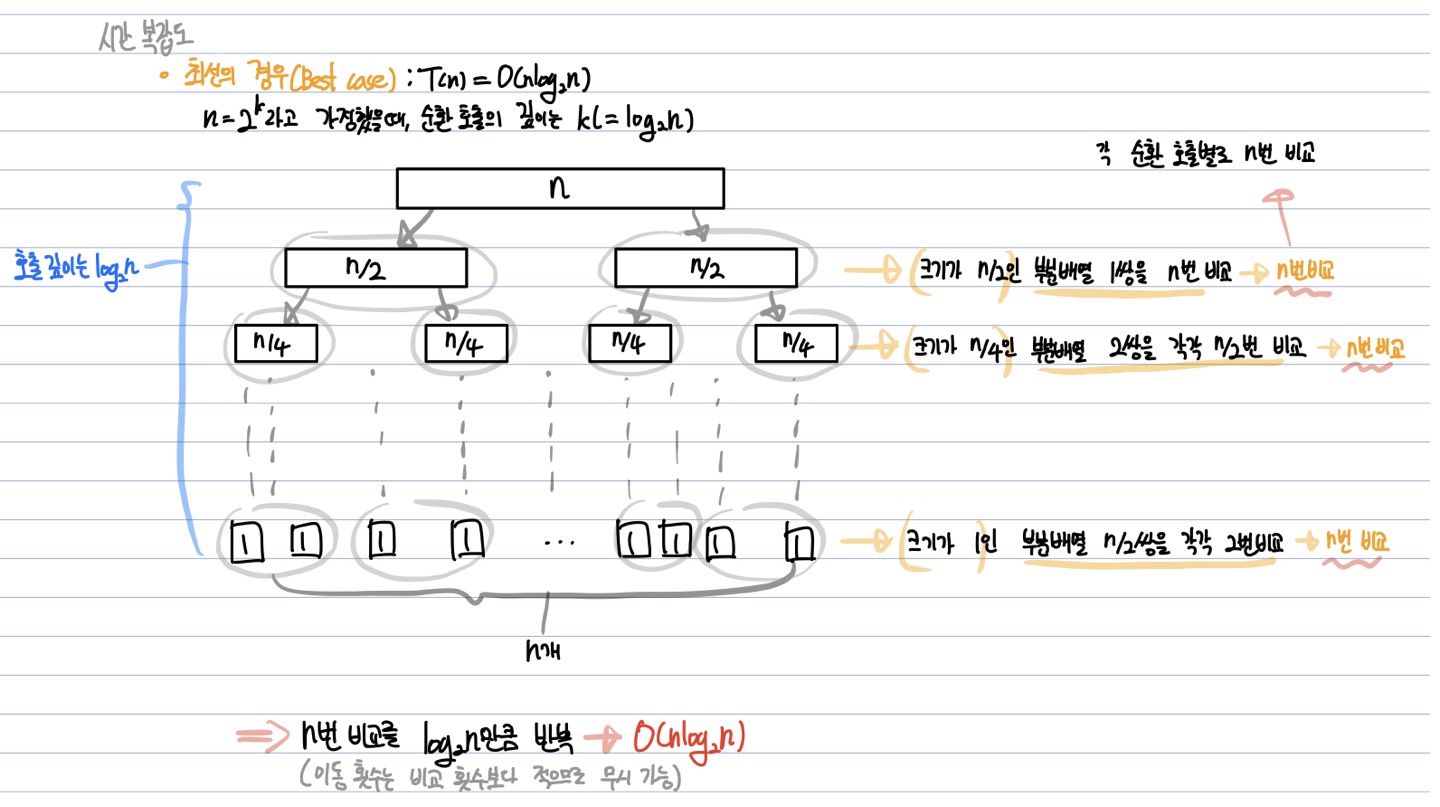 시간 복잡도
• 최선의 경우(Best case) : T(n) = O(nlog₂n)
n=2ᵏ라고 가정했을때, 순환 호출의 깊이는 k(=log₂n)
각 순환 호출별로 n번 비교
n
호출 깊이는 log₂n
n/2 n/2 (크기가 n/2인) 부분배열 1쌍을 n번 비교 → n번 비교
n/4 n/4 n/4 n/4 (크기가 n/4인) 부분배열 2쌍을 각각 n/2번 비교 → n번 비교
1 1 1 1 ... 1 1 1 1 (크기가 1인) 부분배열 n/2쌍을 각각 2번비교 → n번 비교
n개
⇒ n번 비교를 log₂n만큼 반복 → O(nlog₂n)
(이동 횟수는 비교 횟수보다 적으므로 무시 가능)